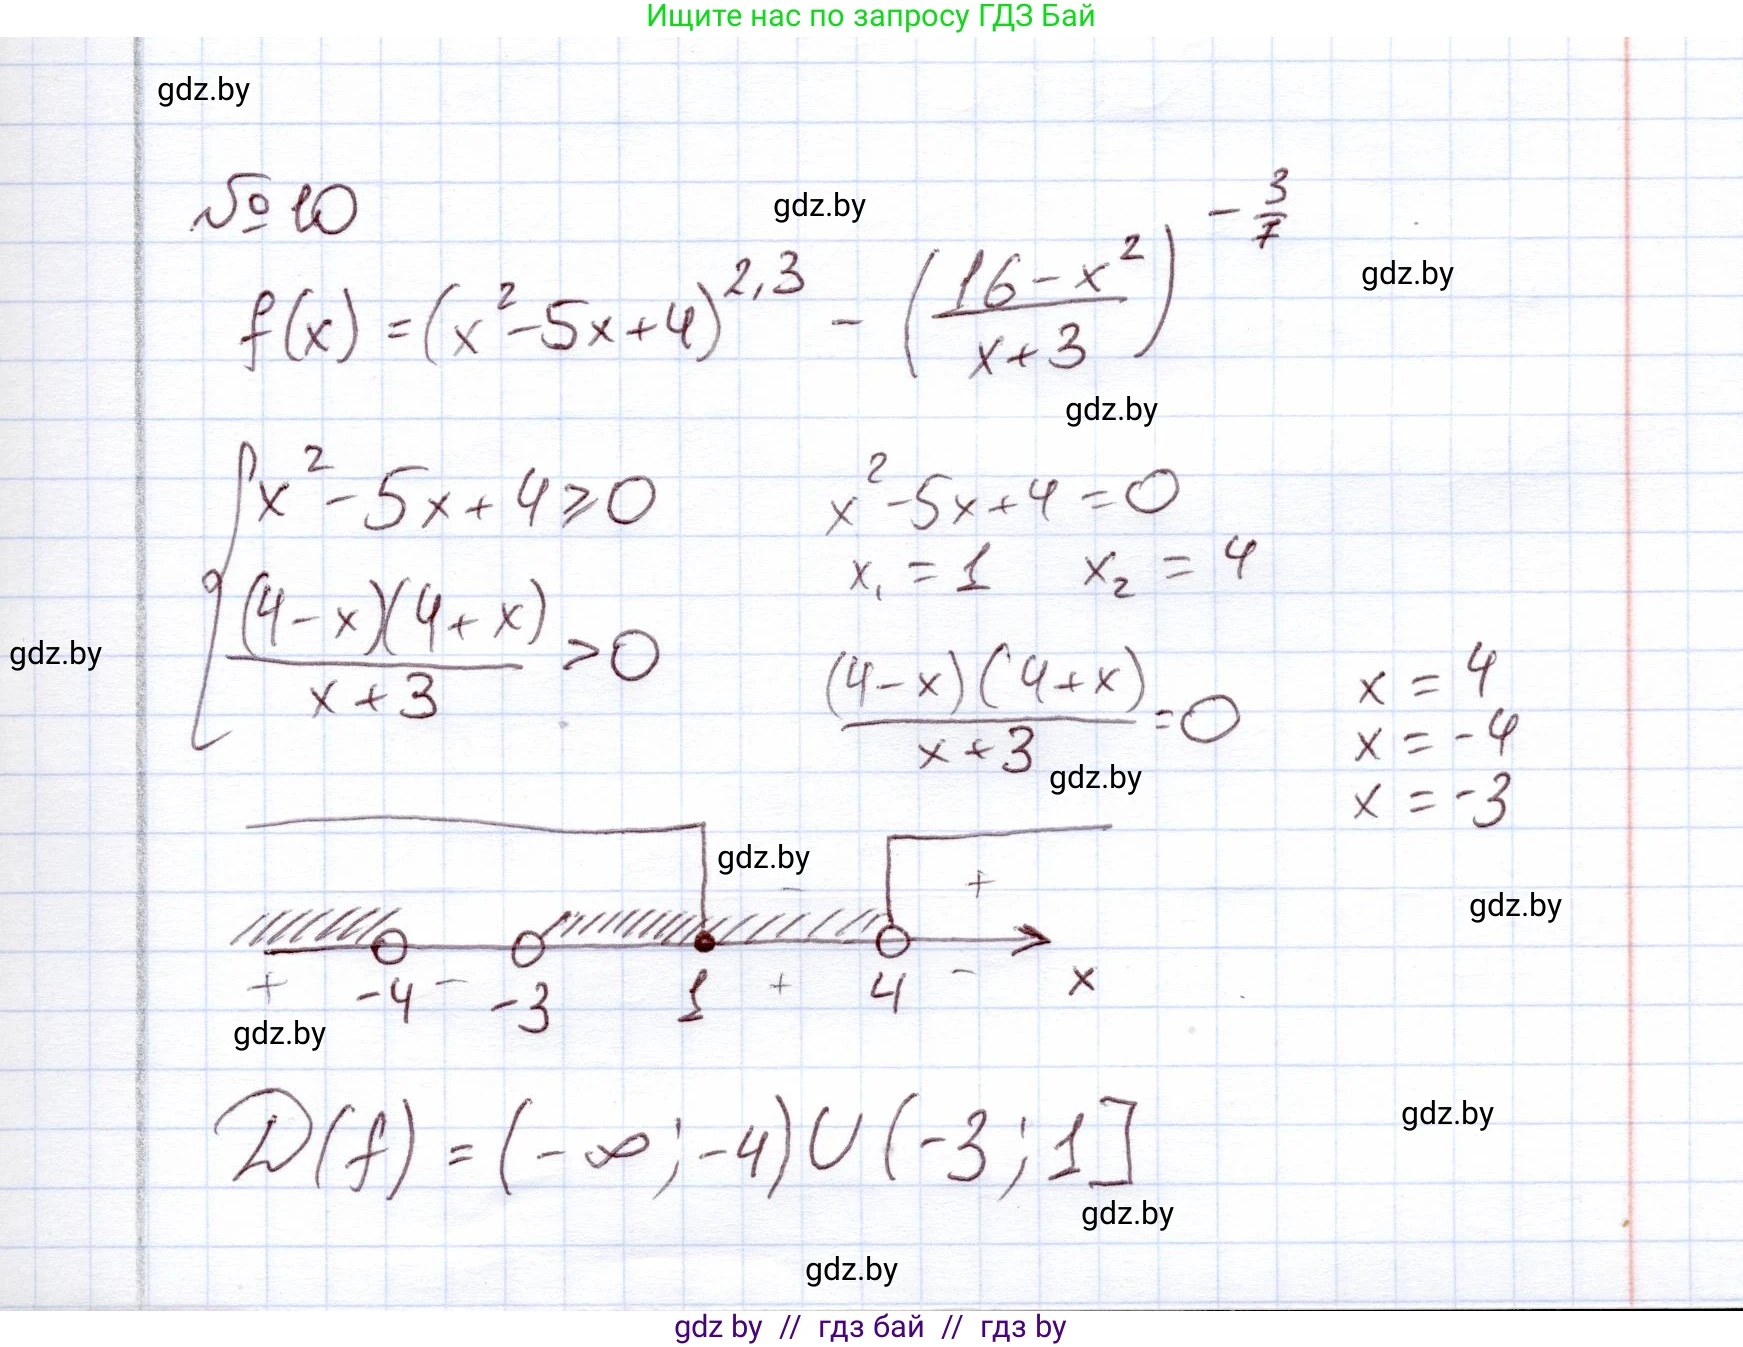 Ищите нас по запросу ГДЗ Бай
gdz.by
№ 10
gdz.by
f(x) = (x² - 5x + 4)^{2,3} - ((16 - x²)/(x + 3))^{-3/7}
gdz.by
gdz.by
{ x² - 5x + 4 ⩾ 0
x² - 5x + 4 = 0
x₁ = 1 x₂ = 4
(4 - x)(4 + x)/(x + 3) > 0
gdz.by
(4 - x)(4 + x)/(x + 3) = 0
x = 4
x = -4
x = -3
gdz.by
gdz.by
- +
gdz.by
+ -4 - -3 1 + 4 - x
gdz.by
D(f) = (-∞; -4) ∪ (-3; 1]
gdz.by
gdz.by
gdz.by
gdz by // гдз бай // гдз by